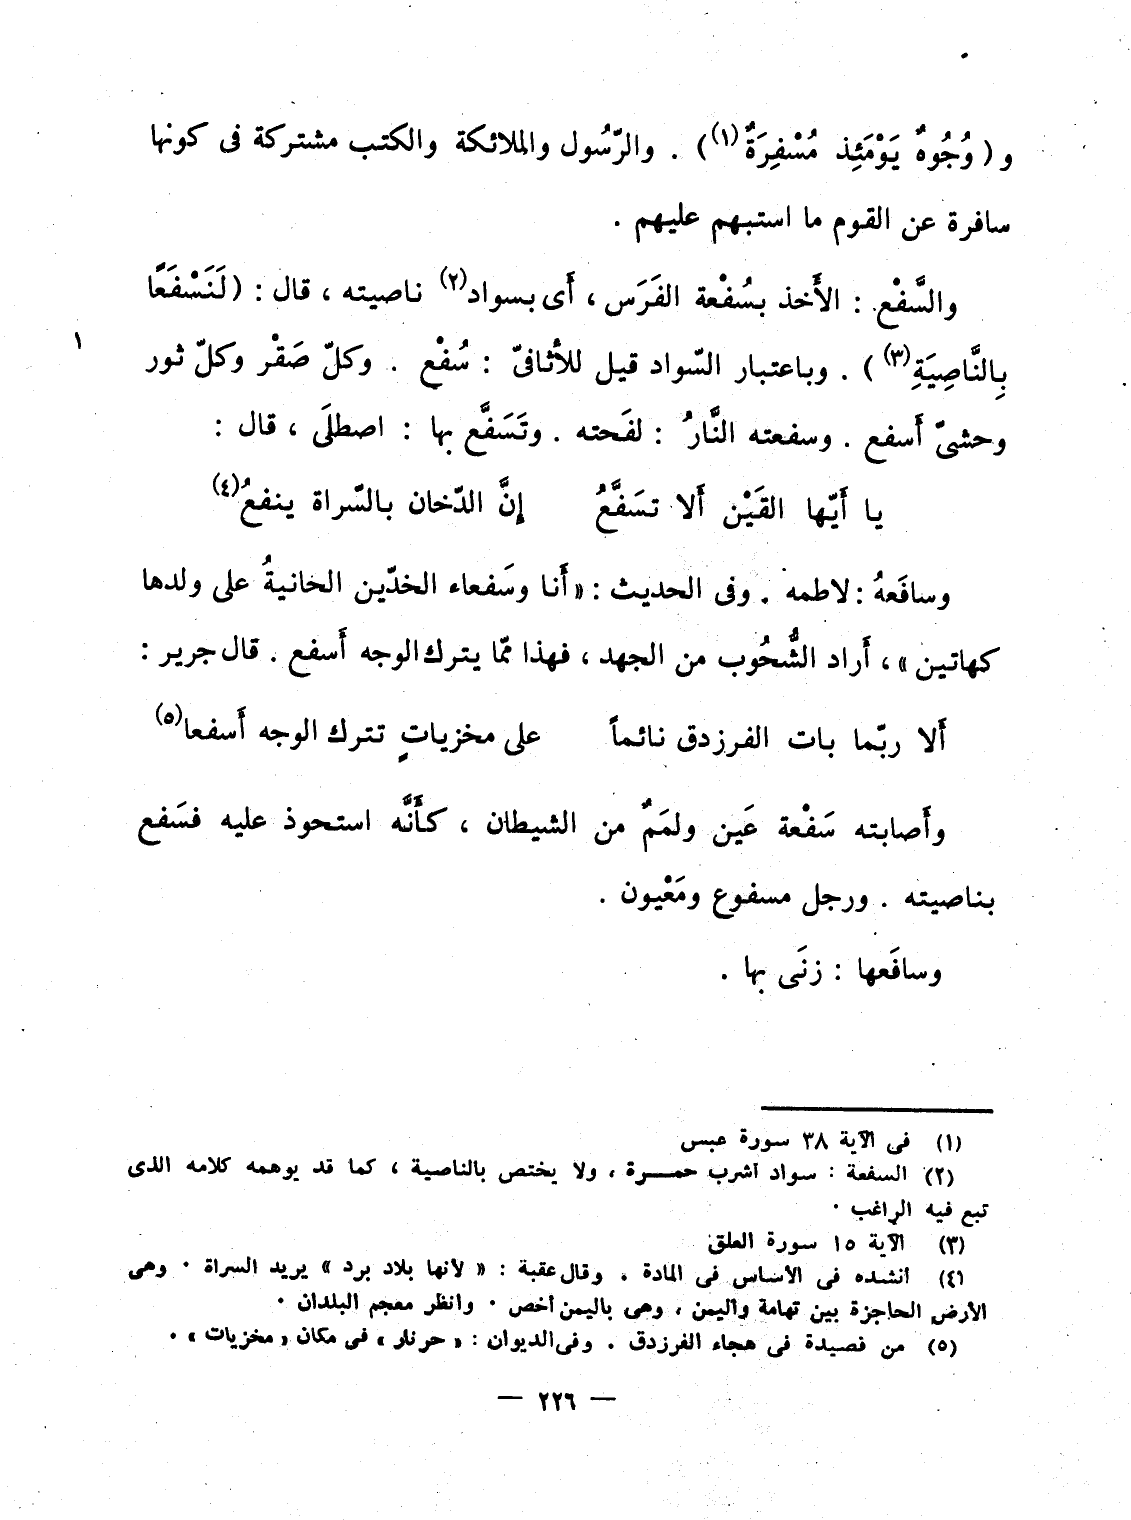 و ( وُجُوهٌ يَوْمَئِذ مُسْفِرَةٌ(١) ) . والرّسُول والملائكة والكتب مشتركة فى كونها
سافرة عن القوم ما استبهم عليهم .
والسَّفْع : الأَخذ بسُفْعة الفَرَس ، أَى بسواد(٢) ناصيته ، قال : ( لَنَسْفَعًا
بِالنَّاصِيَةِ(٣) ) . وباعتبار السّواد قيل للأثافىّ : سُفْع . وكلّ صَقْر وكلّ ثور
١
وحشىّ أَسفع . وسفعته النَّارُ : لفَحته . وتَسَفَّع بها : اصطلَى ، قال :
يا أَيّها القَيْن أَلا تسَفَّعُ إنَّ الدّخان بالسّراة ينفعُ(٤)
وسافَعهُ : لاطمه . وفى الحديث : « أَنا وسَفعاء الخدّين الحانيةُ على ولدها
كهاتين » ، أَراد الشُّحُوب من الجهد ، فهذا ممّا يترك الوجه أَسفع . قال جرير :
أَلا ربّما بات الفرزدق نائماً على مخزياتٍ تترك الوجه أَسفعا(٥)
وأَصابته سَفْعة عَين ولمَمٌ من الشيطان ، كأَنَّه استحوذ عليه فسَفع
بناصيته . ورجل مسفوع ومَعْيون .
وسافَعها : زنَى بها .
(١) فى الآية ٣٨ سورة عبس
(٢) السفعة : سواد أشرب حمرة ، ولا يختص بالناصية ، كما قد يوهمه كلامه الذى
تبع فيه الراغب .
(٣) الآية ١٥ سورة العلق
(٤) أنشده فى الأساس فى المادة . وقال عقبة : « لأنها بلاد برد » يريد السراة . وهى
الأرض الحاجزة بين تهامة واليمن ، وهى باليمن أخص . وانظر معجم البلدان .
(٥) من قصيدة فى هجاء الفرزدق . وفى الديوان : « حر نار » فى مكان « مخزيات » .
— ٢٢٦ —